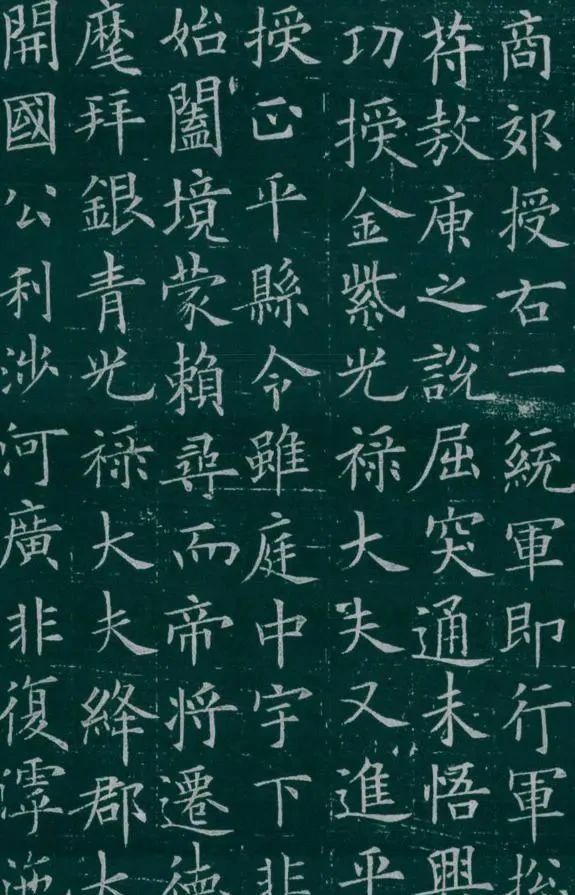 商郊授右一統軍即行軍
苻敖庾之說屈突通未悟興
功授金紫光禄大夫又進平
授正平縣令雖庭中宇下非
始闔境蒙賴尋而帝將遷德
麾拜銀青光禄大夫絳郡大
開國公利涉河廣非復滹